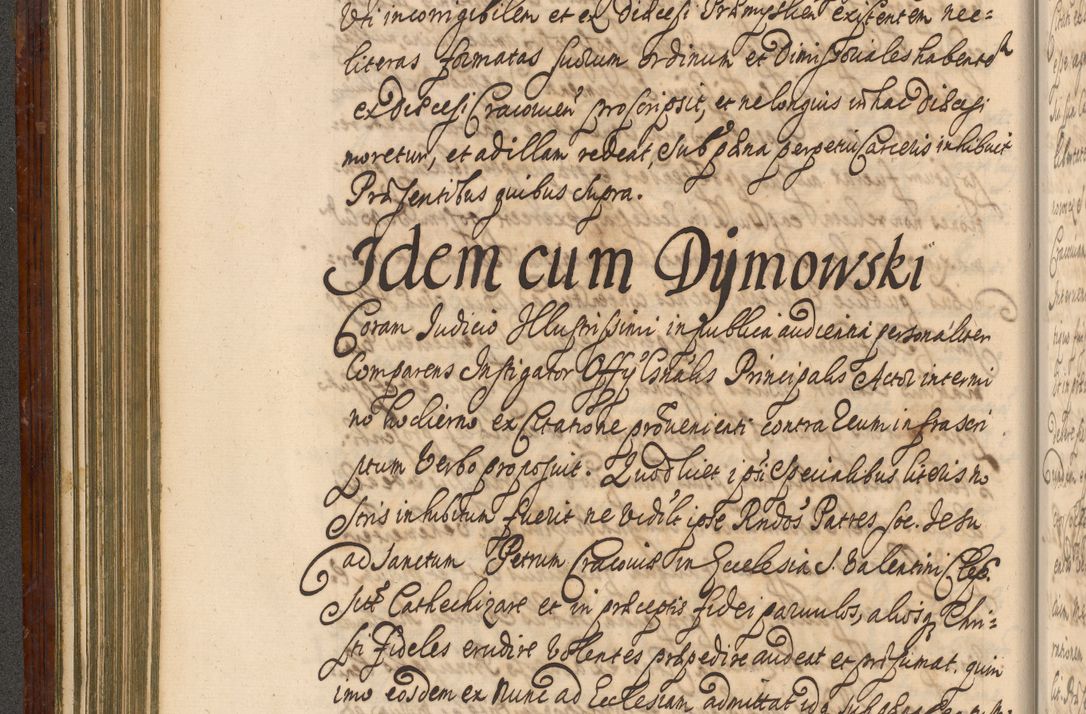 Uti incorrigibilem et ex Diæcesi Præmyslien existentem nec=
literas formatas suorum ordinum et Dimissoriales habente
ex Diæcesi Cracovien proscripsit, et ne longius in hac Diæcesi
moretur, et ad illam redeat, sub pæna perpetui Carceris inhibuit
Præsentibus quibus supra.
Idem cum Dÿmowski
Coram Iudicio Illustrissimi in publica audientia personaliter
Comparens Instigator Offÿ Principalis Actor in termi
no hodierno ex Citatione provenienti contra Reum infrascri
ptum Verbo proposuit. Quod licet ipsi specialibus literis no
stris inhibitum fuerit ne ipse Rndos Patres Soc. Jesu
ad Sanctum Petrum Cracoviæ in Ecclesia S. Valentini Clep.
Cathechizare et in præceptis fidei parvulos, aliosq Chri=
sti fideles erudire Volentes præpedire audeat et præsumat. quin
imo eosdem ex nunc ad Ecclesiam admittat